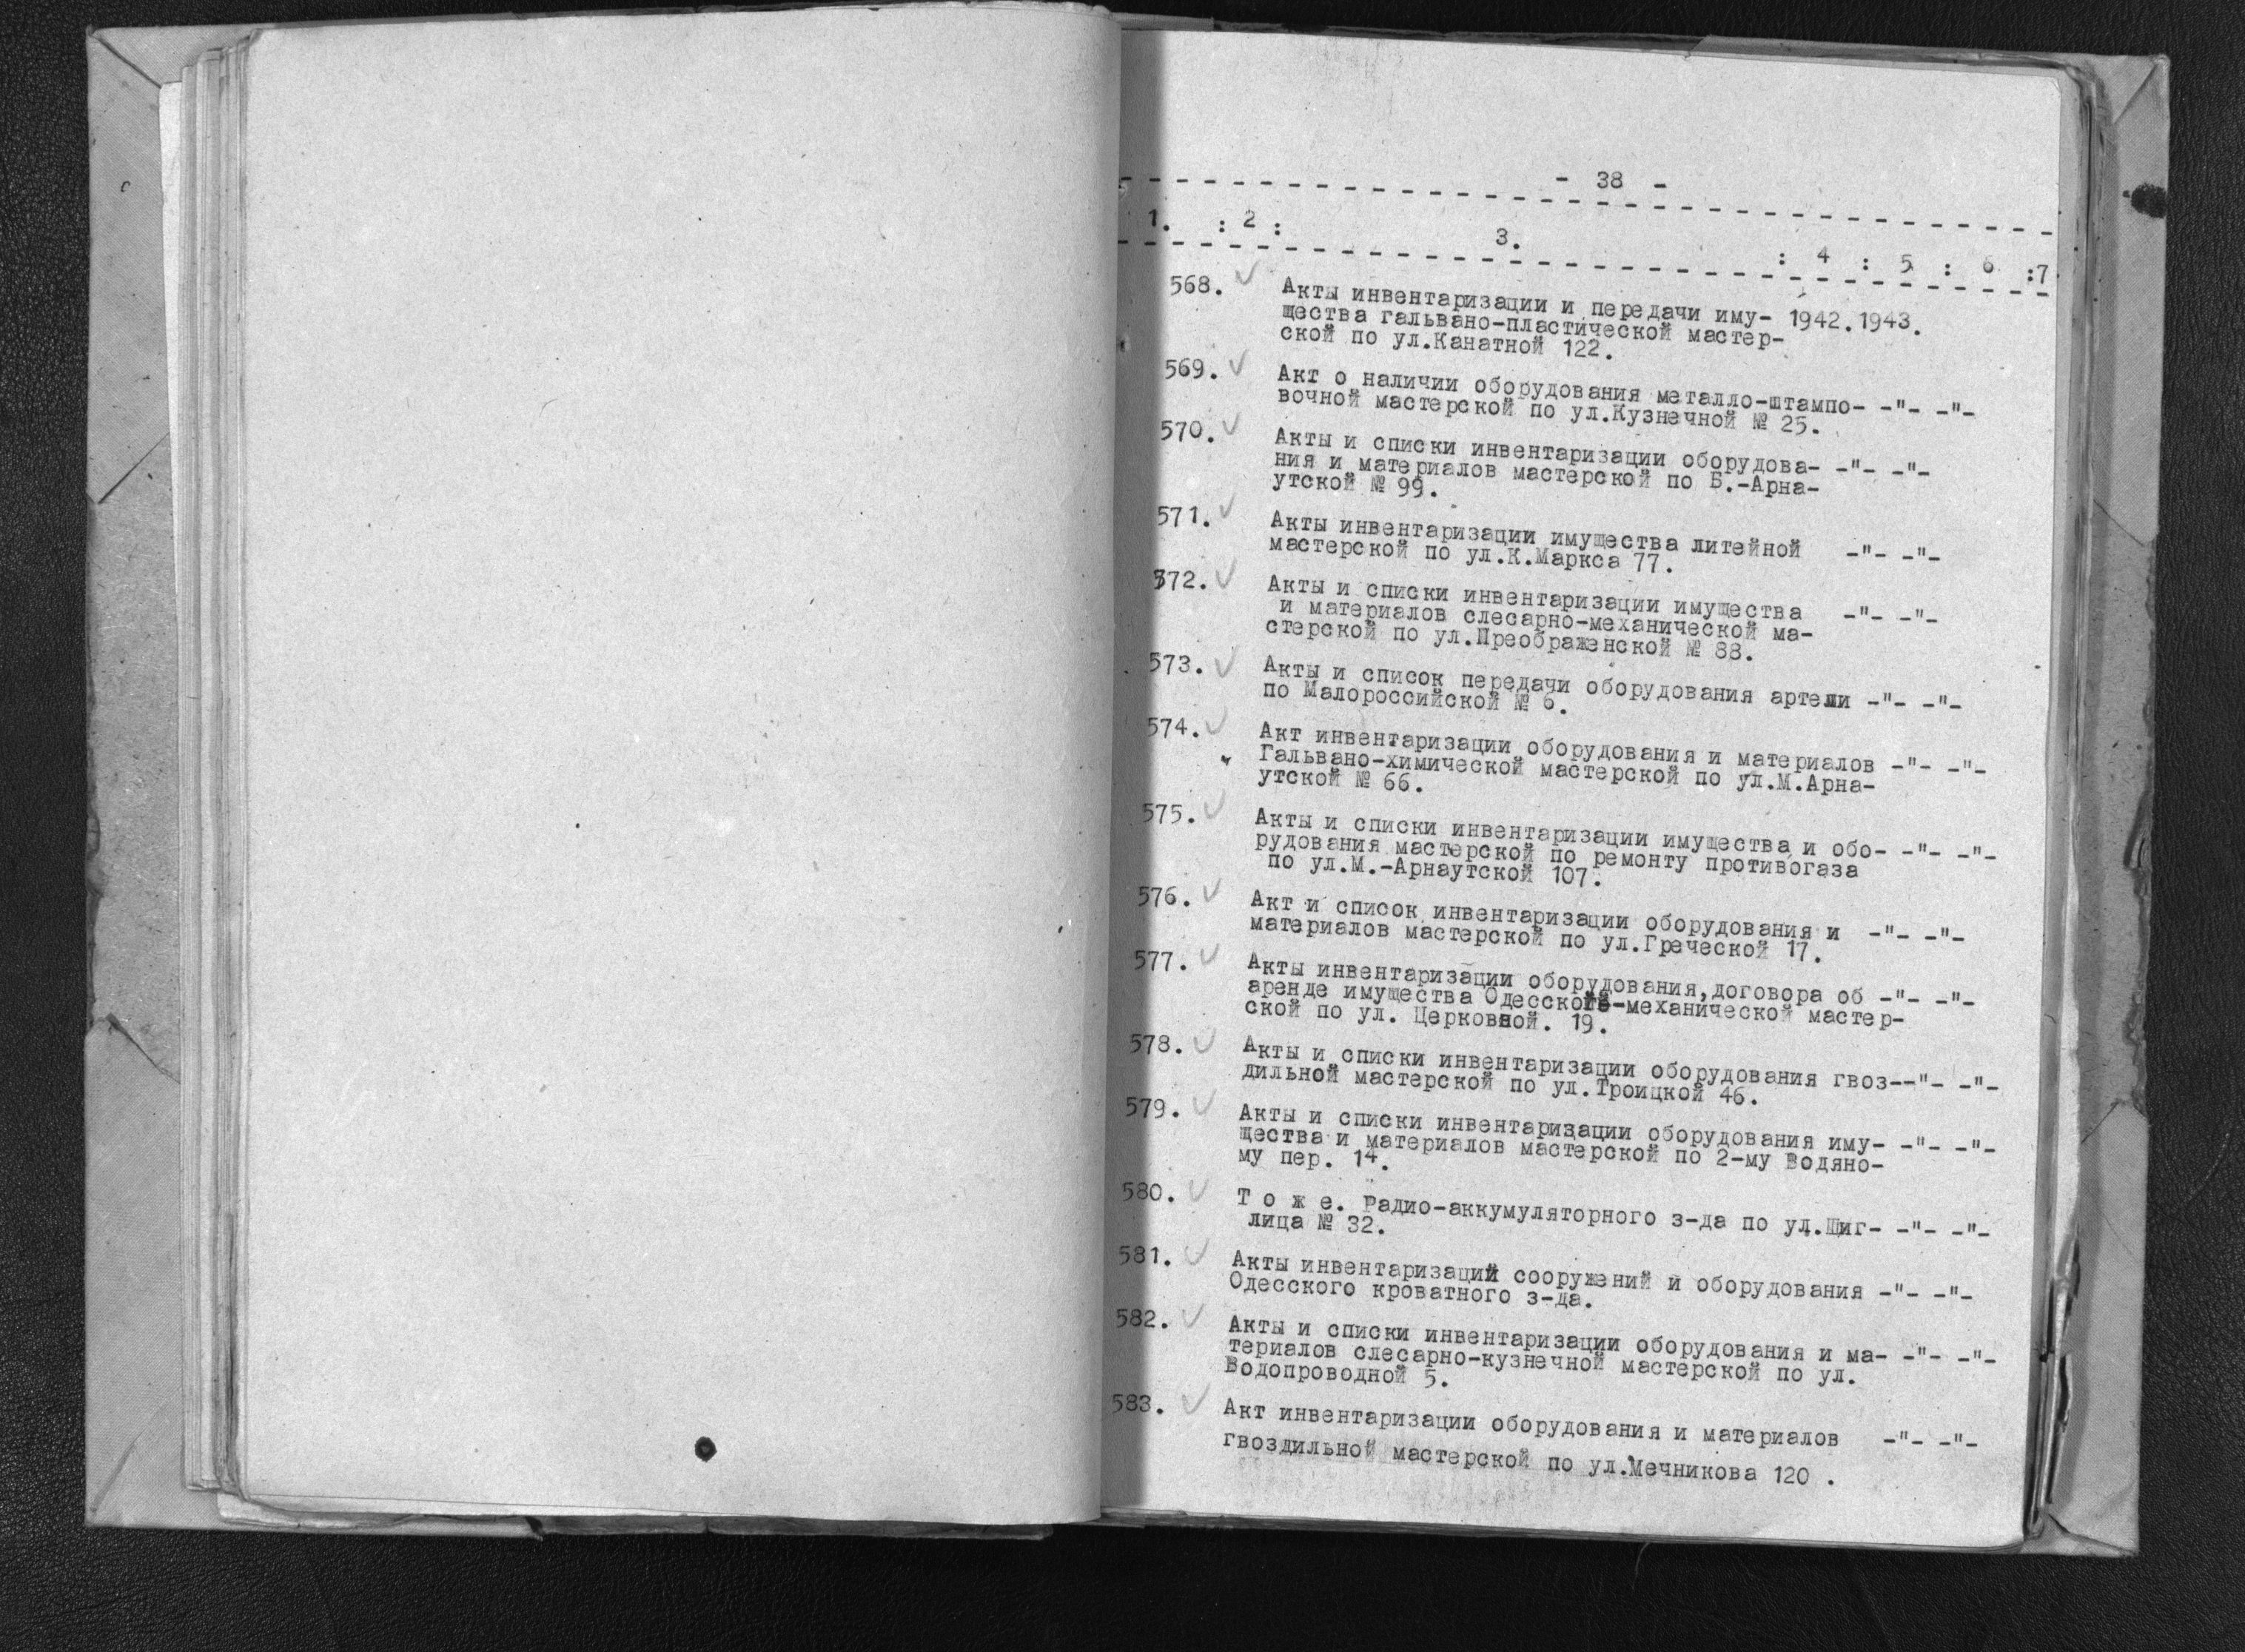 - 38 -
1. : 2 : 3. : 4 : 5 : 6 :7
568. Акты инвентаризации и передачи иму- 1942.1943.
щества гальвано-пластической мастер-
ской по ул.Канатной 122.
569. Акт о наличии оборудования металло-штампо- -"- -"-
вочной мастерской по ул.Кузнечной № 25.
570. Акты и списки инвентаризации оборудова- -"- -"-
ния и материалов мастерской по Б.-Арна-
утской № 99.
571. Акты инвентаризации имущества литейной -"- -"-
мастерской по ул.К.Маркса 77.
572. Акты и списки инвентаризации имущества -"- -"-
и материалов слесарно-механической ма-
стерской по ул.Преображенской № 88.
573. Акты и список передачи оборудования артели -"- -"-
по Малороссийской № 6.
574. Акт инвентаризации оборудования и материалов -"- -"-
Гальвано-химической мастерской по ул.М.Арна-
утской № 66.
575. Акты и списки инвентаризации имущества и обо- -"- -"-
рудования мастерской по ремонту противогаза
по ул.М.-Арнаутской 107.
576. Акт и список инвентаризации оборудования и -"- -"-
материалов мастерской по ул.Греческой 17.
577. Акты инвентаризации оборудования,договора об -"- -"-
аренде имущества Одесской-механической мастер-
ской по ул. Церковной. 19.
578. Акты и списки инвентаризации оборудования гвоз--"- -"-
дильной мастерской по ул.Троицкой 46.
579. Акты и списки инвентаризации оборудования иму- -"- -"-
щества и материалов мастерской по 2-му Водяно-
му пер. 14.
580. Т о ж е. Радио-аккумуляторного з-да по ул.Шиг- -"- -"-
лица № 32.
581. Акты инвентаризаций сооружений и оборудования -"- -"-
Одесского кроватного з-да.
582. Акты и списки инвентаризации оборудования и ма- -"- -"-
териалов слесарно-кузнечной мастерской по ул.
Водопроводной 5.
583. Акт инвентаризации оборудования и материалов -"- -"-
гвоздильной мастерской по ул.Мечникова 120 .